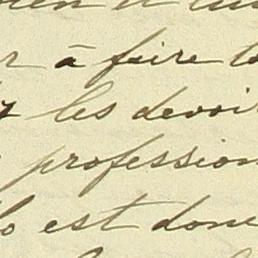 r à faire
les devoir
profession
est donc